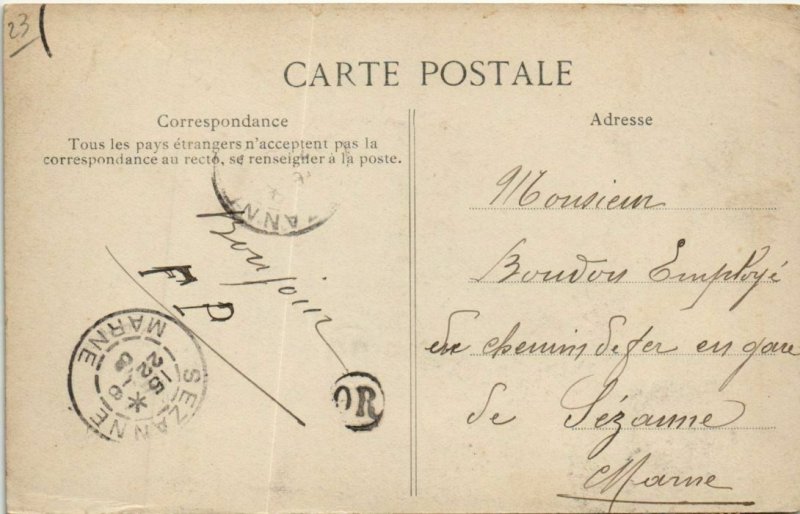 23
CARTE POSTALE
Correspondance
Tous les pays étrangers n'acceptent pas la
correspondance au recto, se renseigner à la poste.
ANN
Bonjour
F P
SEZANNE
MARNE
OR
Adresse
Monsieur
Boudou Employé
de chemins de fer en gare
de Sézanne
Marne